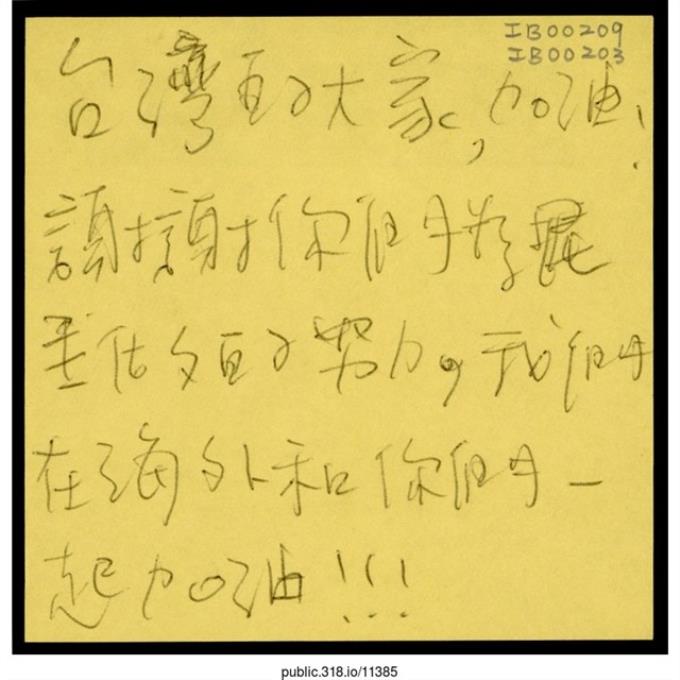 IB00209
IB00203
台灣的大家,加油!
謝謝你們
的努力。我們
在海外和你們一
起加油!!!
public.318.io/11385